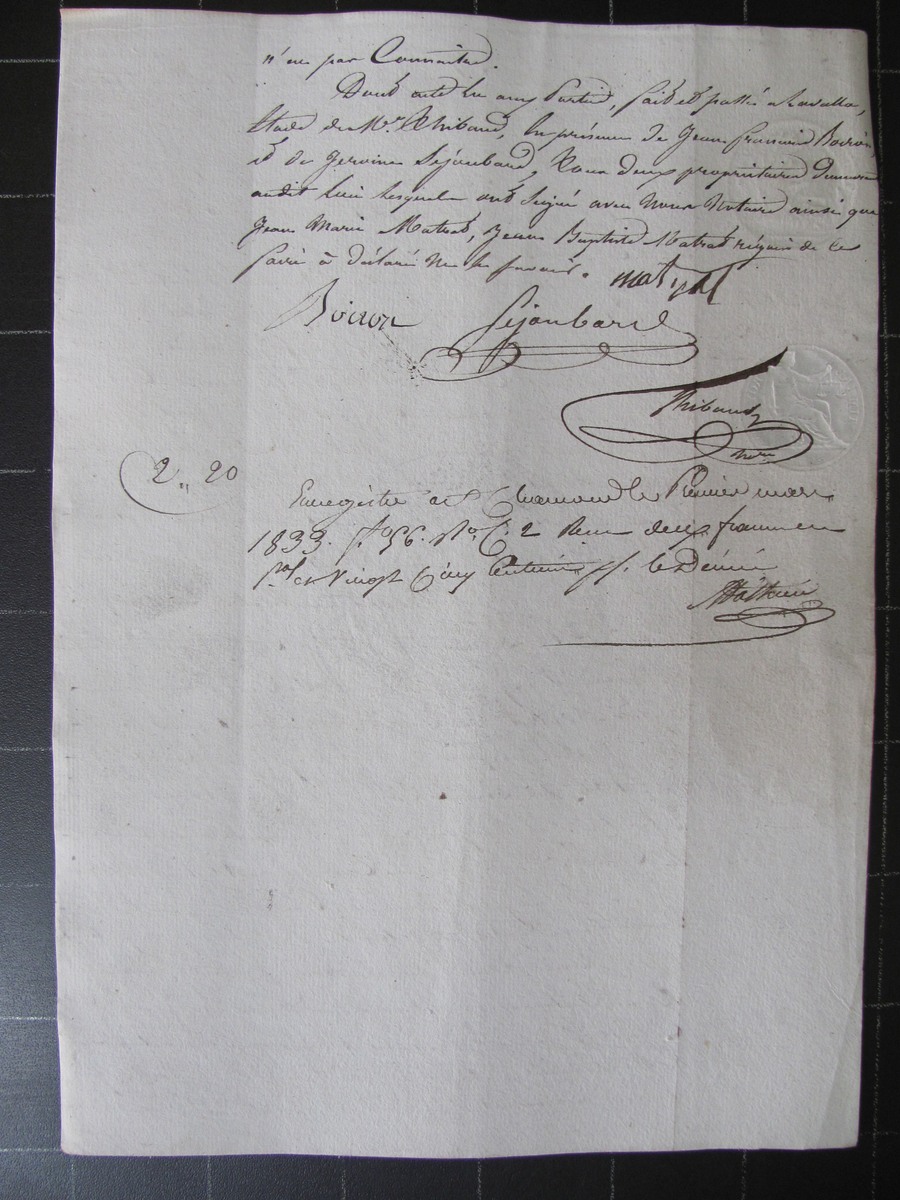 n'en pas Connaitre.
Dont acte lu aux Parties, fait et passé a Lavalla,
Etude de Mr. Thibaud, En présence de Jean francois Boiron,
et de Gervais Séjoubard, Tous deux propriétaires demeurant
audit lieu lesquels ont Signé avec Nous Notaire ainsi que
Jean Marie Matrat, Jean Baptiste Matrat réquis de ce
faire à déclaré ne le savoir. matrat
Boiron Sejoubard
Thibaud
nore
2 " 20
Enregistré a St Chamond le Premier mars
1833. fo 56. Vo. C. 2 Recu deux francs en
pal et Vingt Cinq Centimes pr. le Décime